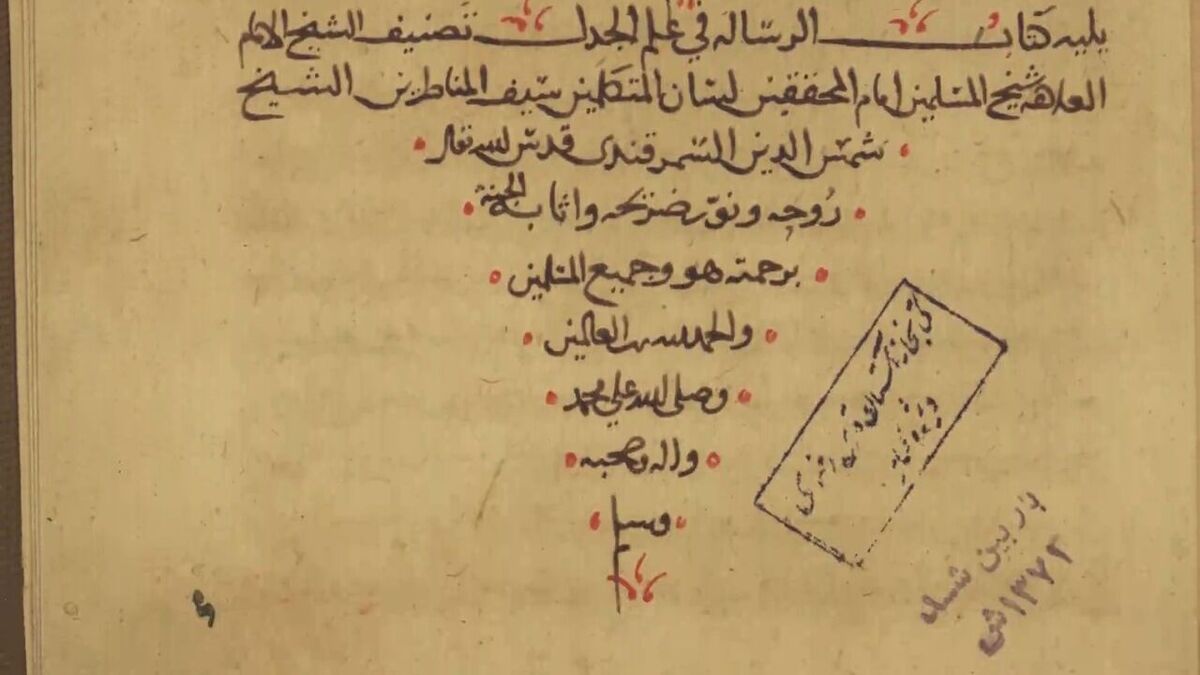 يليه كتاب الرساله في علم الجدل تصنيف الشيخ الامام
العلامه شيخ المسلمين امام المحققين لسان المتكلمين سيف المناظرين الشيخ
شمس الدين السمرقندى قدس الله تعالى
روحه ونور ضريحه واثابه الجنة
برحمته هو وجميع المسلمين
والحمد لله رب العالمين
وصلى الله على محمد
واله وصحبه
وسلم
كتابخانه آستان قدس
بازبین شد
۱۳۷۲ ش